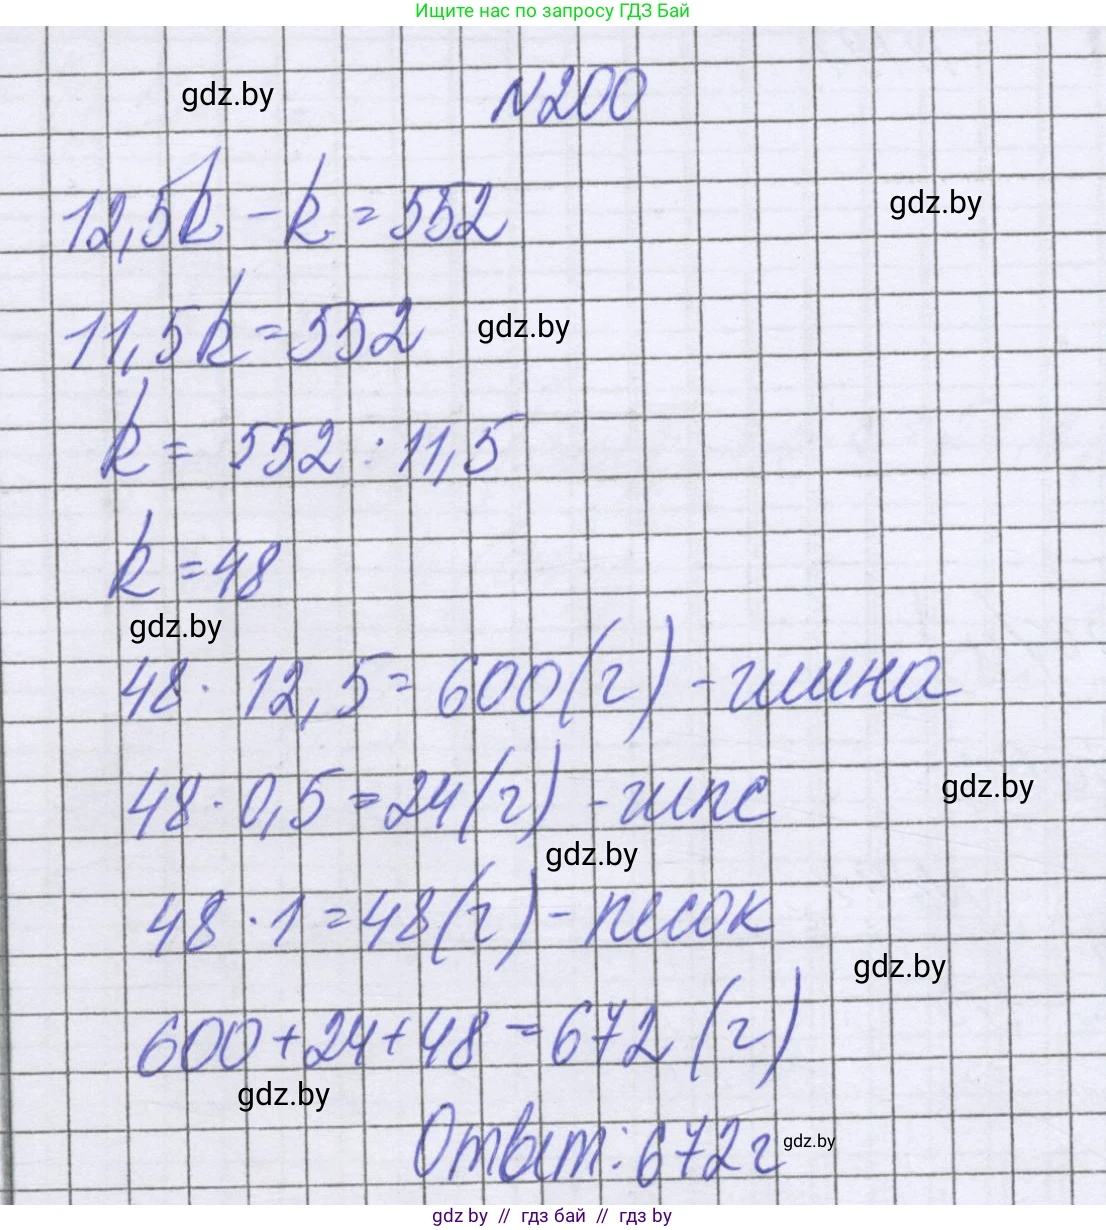 Ищите нас по запросу ГДЗ Бай
gdz.by
N200
12,5k - k = 552
gdz.by
11,5k = 552
gdz.by
k = 552 : 11,5
k = 48
gdz.by
48 · 12,5 = 600 (г) - глина
48 · 0,5 = 24 (г) - гипс
gdz.by
gdz.by
48 · 1 = 48 (г) - песок
gdz.by
600 + 24 + 48 = 672 (г)
gdz.by
Ответ: 672 г
gdz.by
gdz.by // гдз бай // гдз by